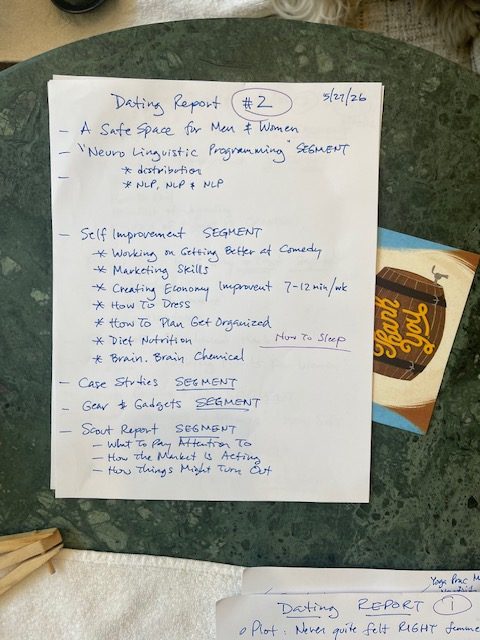 Dating Report #2 5/27/26
– A Safe Space for Men & Women
– "Neuro Linguistic Programming" SEGMENT
* distribution
– * NLP, NLP & NLP
– Self Improvement SEGMENT
* Working on Getting Better at Comedy
* Marketing Skills
* Creating Economy Improvent 7-12 min/wk
* How To Dress
* How To Plan Get Organized
* Diet Nutrition How To Sleep
* Brain. Brain Chemical
– Case Studies SEGMENT
– Gear & Gadgets SEGMENT
– Scout Report SEGMENT
– What To Pay Attention To
– How The Market Is Acting
– How Things Might Turn Out
Yoga
Dating REPORT 1
Plot: Never quite felt RIGHT